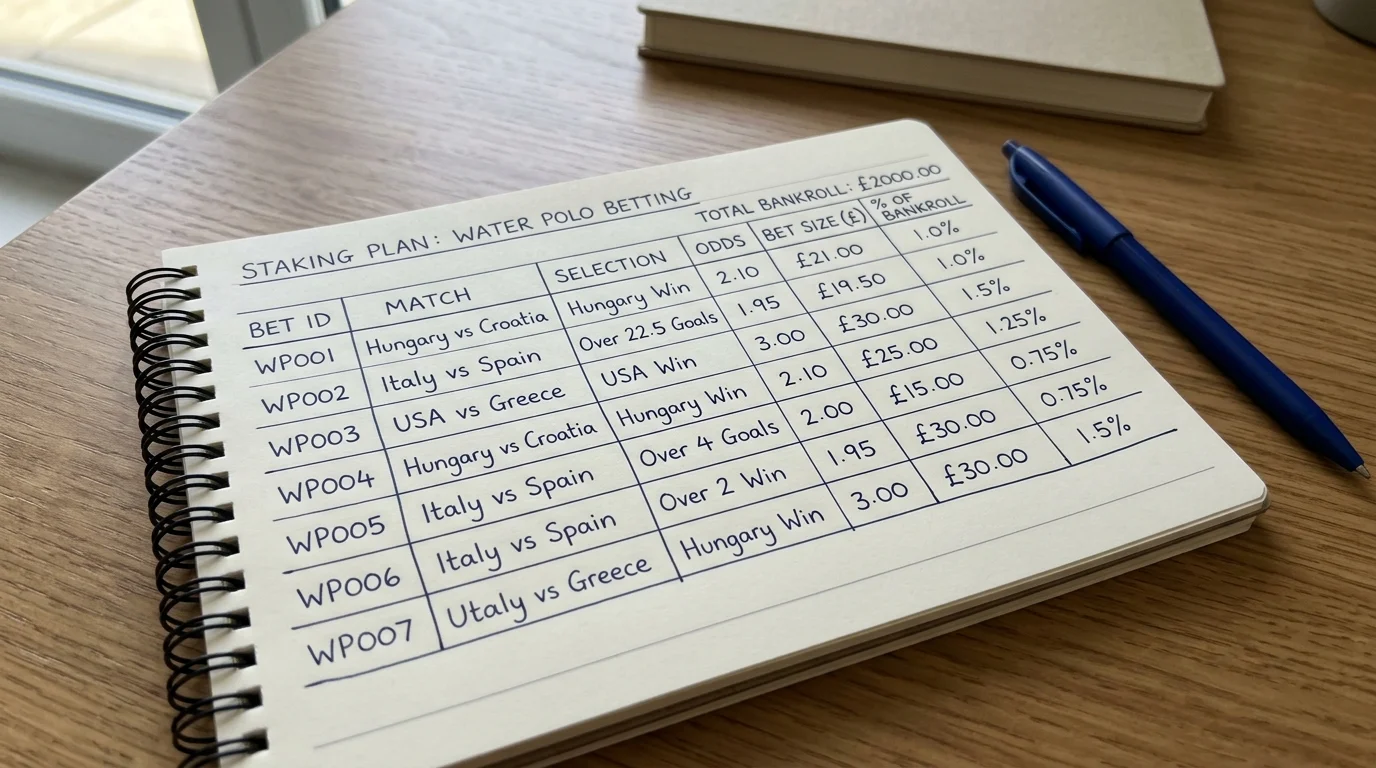 STAKING PLAN: WATER POLO BETTING
TOTAL BANKROLL: £2000.00
BET ID MATCH SELECTION ODDS BET SIZE (£) % OF BANKROLL
WP001 Hungary vs Croatia Hungary Win 2.10 £21.00 1.0%
WP002 Italy vs Spain Over 22.5 Goals 1.95 £19.50 1.0%
WP003 USA vs Greece USA Win 3.00 £30.00 1.5%
WP004 Hungary vs Croatia Hungary Win 2.10 £25.00 1.25%
WP005 Italy vs Spain Over 4 Goals 2.00 £15.00 0.75%
WP006 Italy vs Spain Over 2 Win 1.95 £30.00 0.75%
WP007 Utaly vs Greece Hungary Win 3.00 £30.00 1.5%